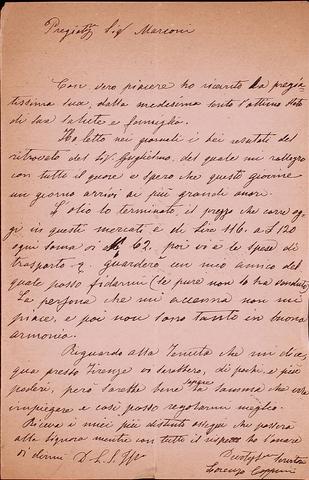 Pregiat. Sig. Marconi
Con vero piacere ho ricevuto la pregia-
tissima sua, dalla medesima sento l'ottimo stato
di sua salute e famiglia.
Ho letto nei giornali i bei resultati del
ritrovato del Sig. Guglielmo, del quale mi rallegro
con tutto il cuore e spero che questo giovine
un giorno arrivi ai più grandi onori.
L'olio l'o terminato, il prezzo che corre og-
gi in questi mercati è di Lire 116. a £ 120
ogni soma di 62. poi vi è le spese di
trasporto guarderò un mio amico del
quale posso fidarmi (se pure non lo ha venduto)
La persona che mi accenna non mi
piace, e poi non sono tanto in buona
armonia.
Riguardo alla Tenuta che mi dice,
qua presso Firenze vi sarebbero, di pochi, e più
poderi, però sarebbe bene sapere la somma che vole
impiegare e così posso regolarmi meglio.
Riceva i miei più distinti ossequi che passerà
alla Signora mentre con tutto il rispetto ho l'onore
di dirmi D. L. S. Ill.
Lorenzo Coppini